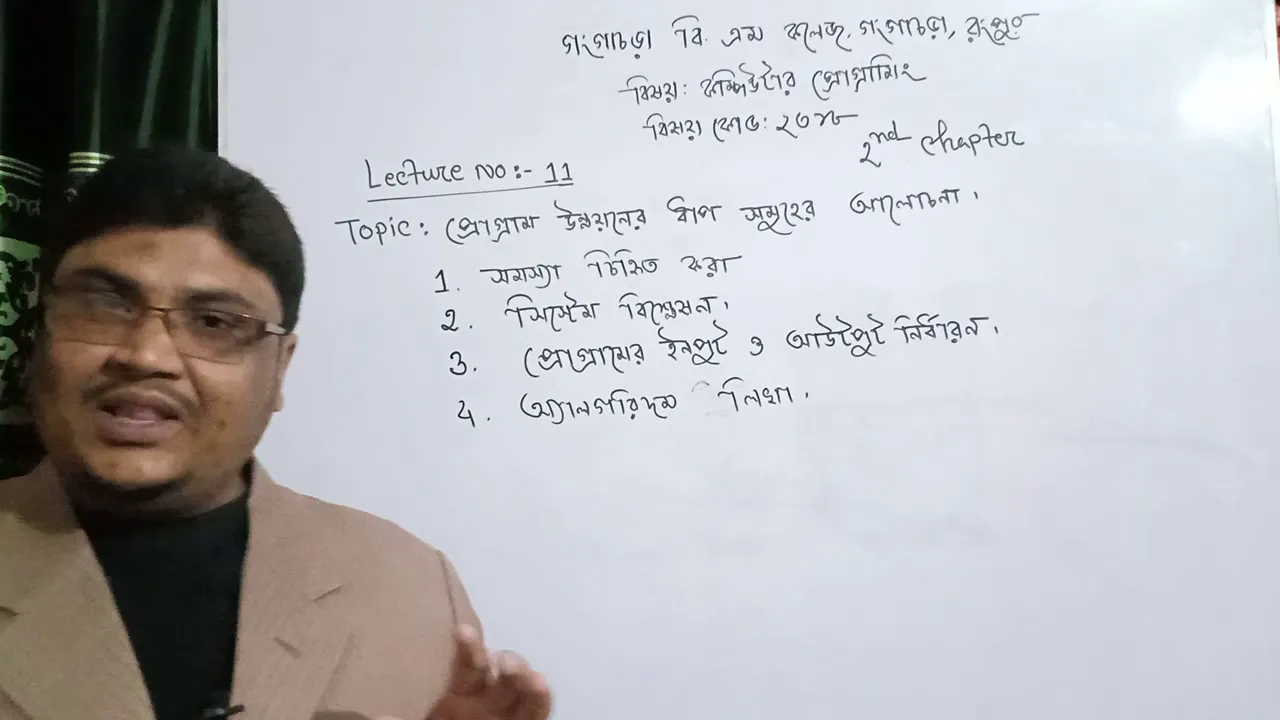 গংগাচড়া বি. এম কলেজ, গংগাচড়া, রংপুর
বিষয়: কম্পিউটার প্রোগ্রামিং
বিষয় কোড:
2nd chapter
Lecture No:- 11
Topic: প্রোগ্রাম উন্নয়নের ধাপ সমুহের আলোচনা।
1. সমস্যা চিহ্নিত করা
2. সিস্টেম বিশ্লেষন।
3. প্রোগ্রামের ইনপুট ও আউটপুট নির্ধারন।
4. অ্যালগরিদম লিখা।